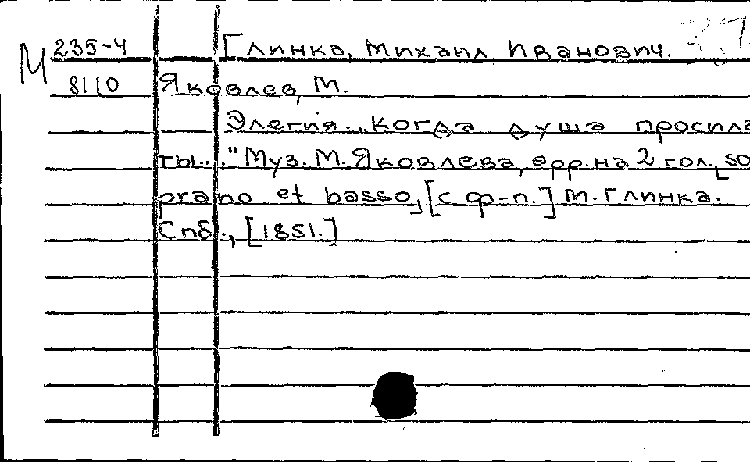 М 235-4 Глинка, Михаил Иванович.
8110 Яковлев, М.
Элегия „Когда душа просила
ты..." Муз. М. Яковлева, арр. на 2 гол. [so
prano et basso, [с ф-п.] М. Глинка.
Спб., [1851.]